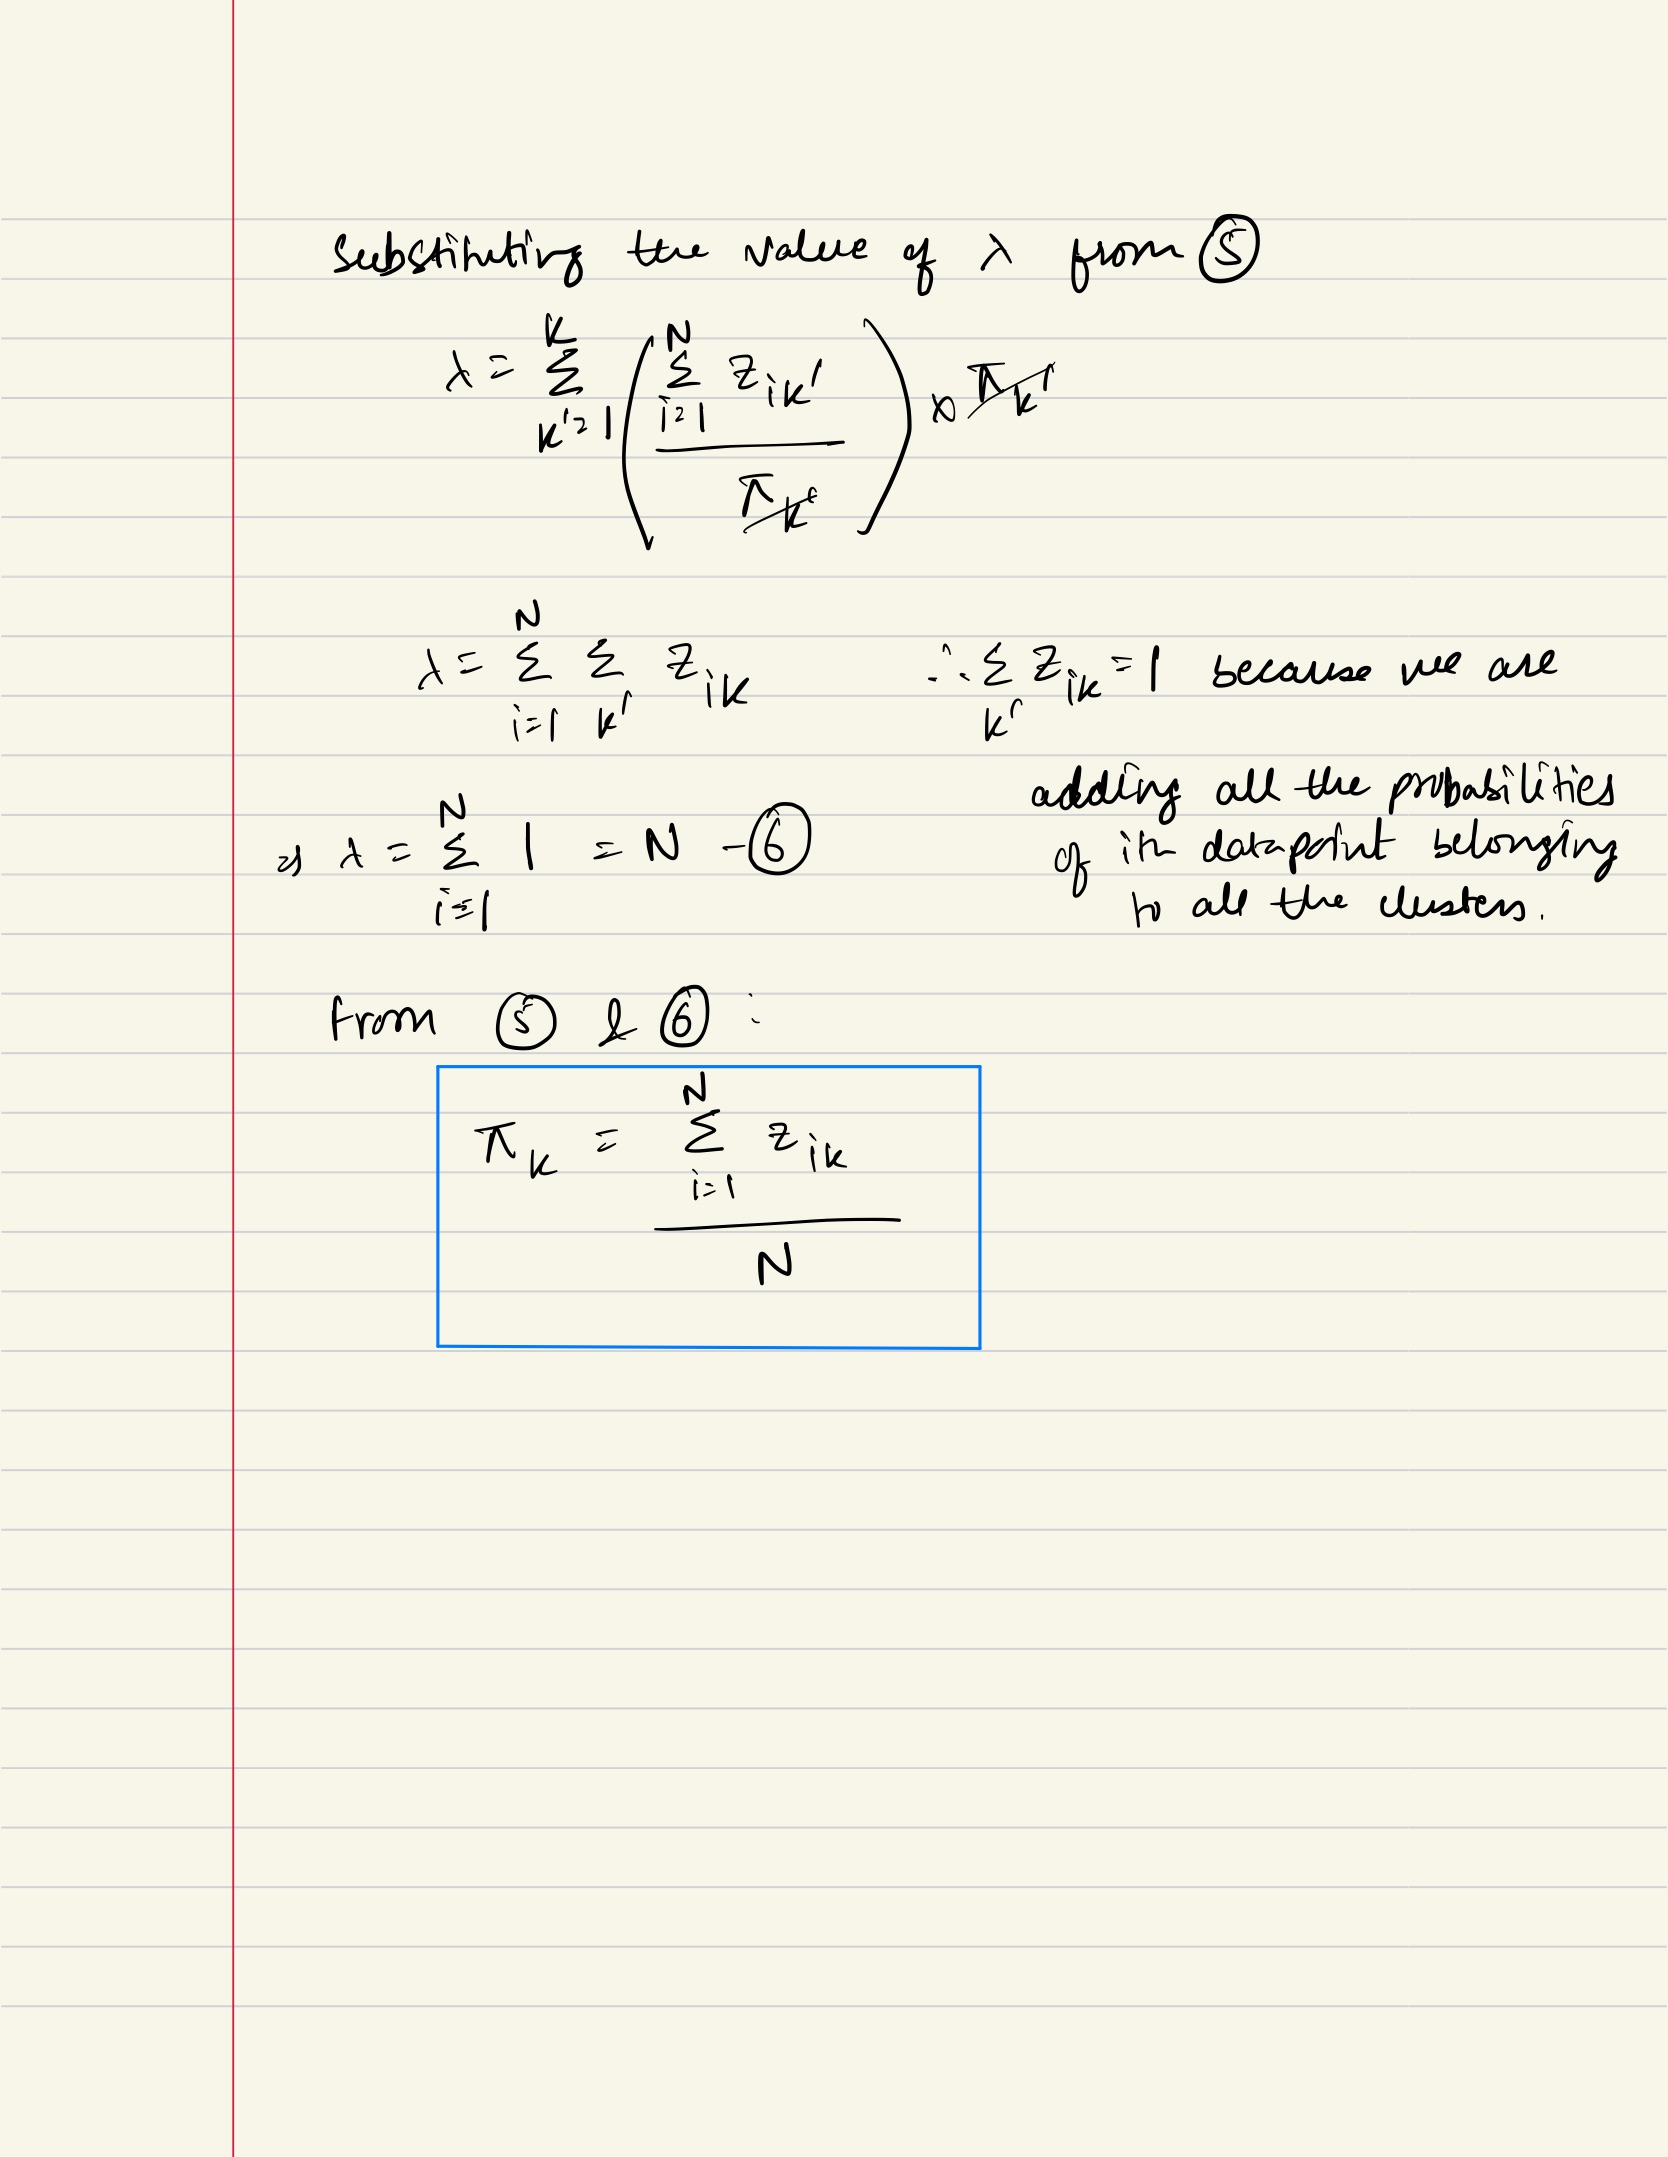 Substituting the value of λ from ⑤
λ = Σ_{k'=1}^{K} ( (Σ_{i=1}^{N} z_{ik'}) / π_{k'} ) × π_{k'}
λ = Σ_{i=1}^{N} Σ_{k'} z_{ik} ∴ Σ_{k'} z_{ik} = 1 because we are
adding all the probabilities
of ith datapoint belonging
to all the clusters.
⇒ λ = Σ_{i=1}^{N} 1 = N - ⑥
From ⑤ & ⑥ :
π_k = (Σ_{i=1}^{N} z_{ik}) / N